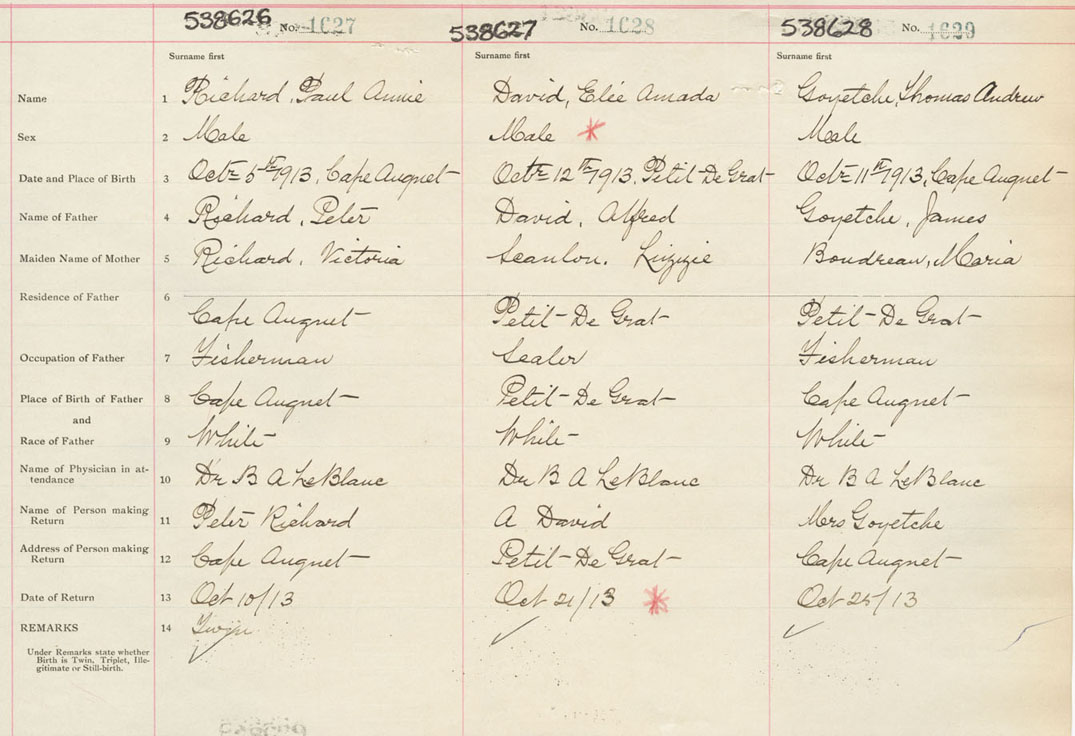 538626 No. 1627 538627 No. 1628 538628 No. 1629
Surname first Surname first Surname first
Name 1 Richard, Paul Annie David, Elie Amada Goyetche, Thomas Andrew
Sex 2 Male Male * Male
Date and Place of Birth 3 Octr 5th 1913, Cape Auguet Octr 12th 1913, Petit-De Grat Octr 11th 1913, Cape Auguet
Name of Father 4 Richard, Peter David, Alfred Goyetche, James
Maiden Name of Mother 5 Richard, Victoria Scanlon, Lizizie Boudreau, Maria
Residence of Father 6
Cape Auguet Petit-De Grat Petit-De Grat
Occupation of Father 7 Fisherman Sealer Fisherman
Place of Birth of Father 8 Cape Auguet Petit-De Grat Cape Auguet
and
Race of Father 9 White White White
Name of Physician in at-
tendance 10 Dr B A LeBlanc Dr B A LeBlanc Dr B A LeBlanc
Name of Person making
Return 11 Peter Richard A David Mrs Goyetche
Address of Person making
Return 12 Cape Auguet Petit-De Grat Cape Auguet
Date of Return 13 Oct 10/13 Oct 21/13 * Oct 25/13
REMARKS 14 Twin
Under Remarks state whether
Birth is Twin, Triplet, Ille-
gitimate or Still-birth.